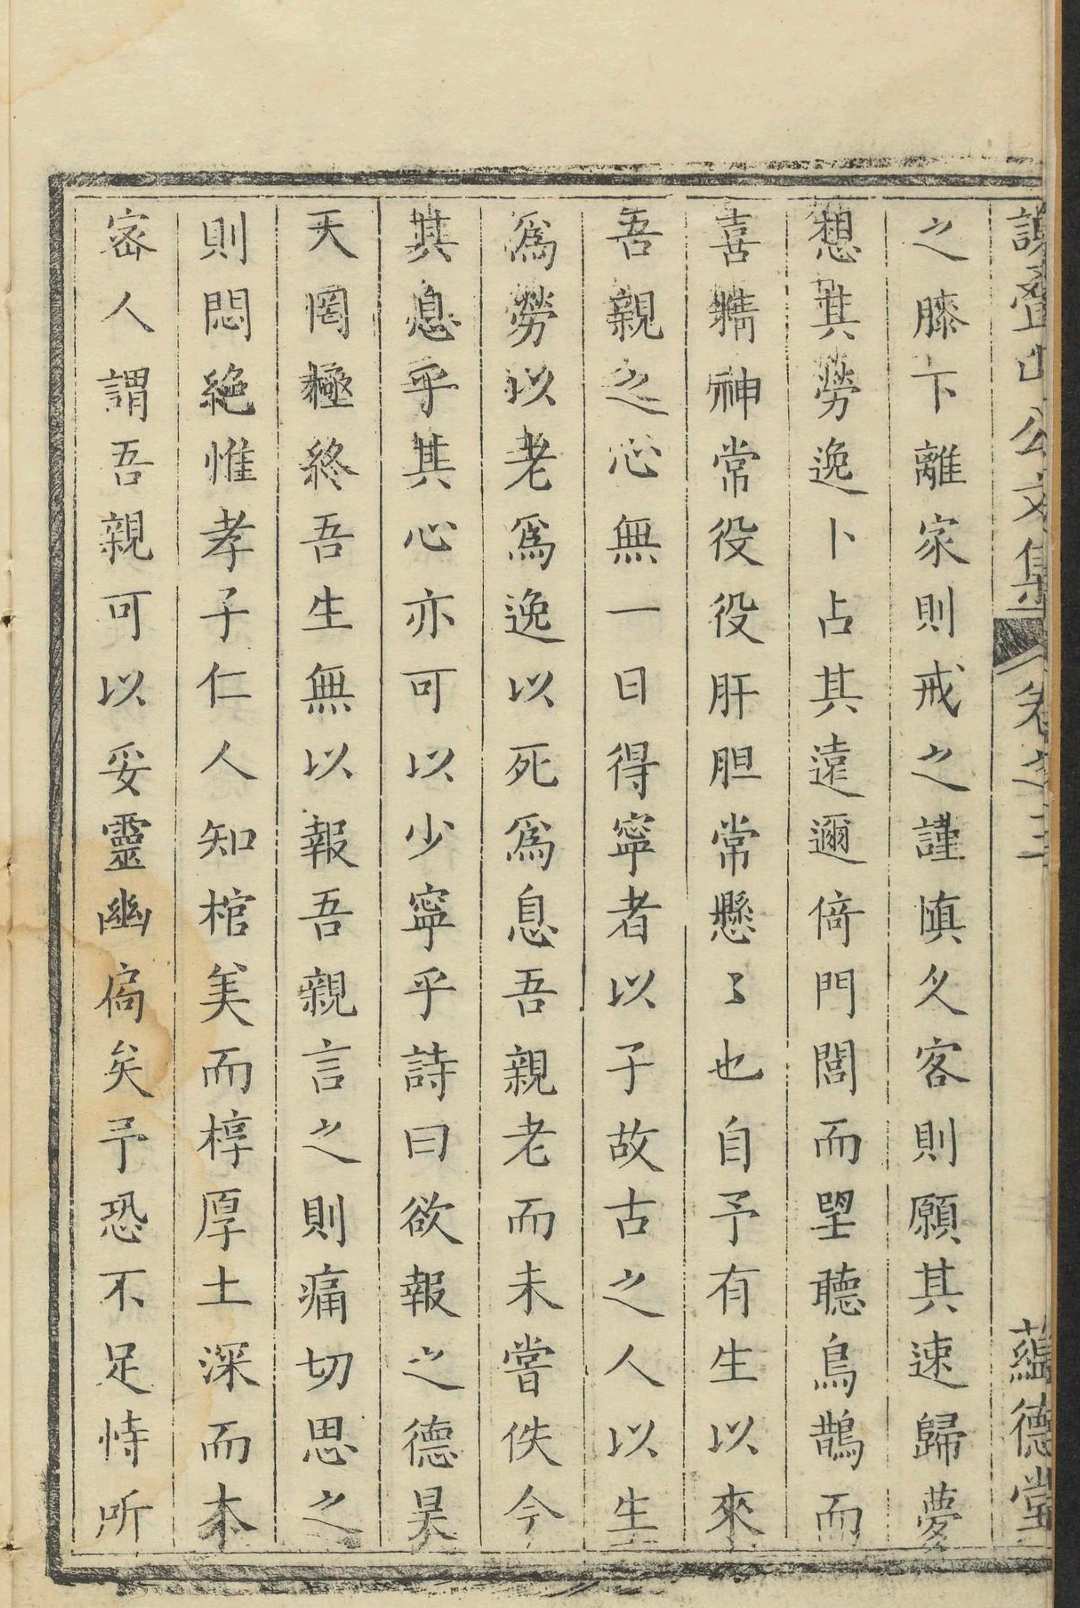 謝疊山公文集 卷之三 蘊德堂
之膝下離家則戒之謹慎久客則願其速歸夢
想其勞逸卜占其遠邇倚門閭而望聽鳥鵲而
喜精神常役役肝胆常懸了也自予有生以來
吾親之心無一日得寧者以子故古之人以生
爲勞以老爲逸以死爲息吾親老而未嘗佚今
其息乎其心亦可以少寧乎詩曰欲報之德昊
天罔極終吾生無以報吾親言之則痛切思之
則悶絶惟孝子仁人知棺美而椁厚土深而木
密人謂吾親可以妥靈幽扃矣予恐不足恃所